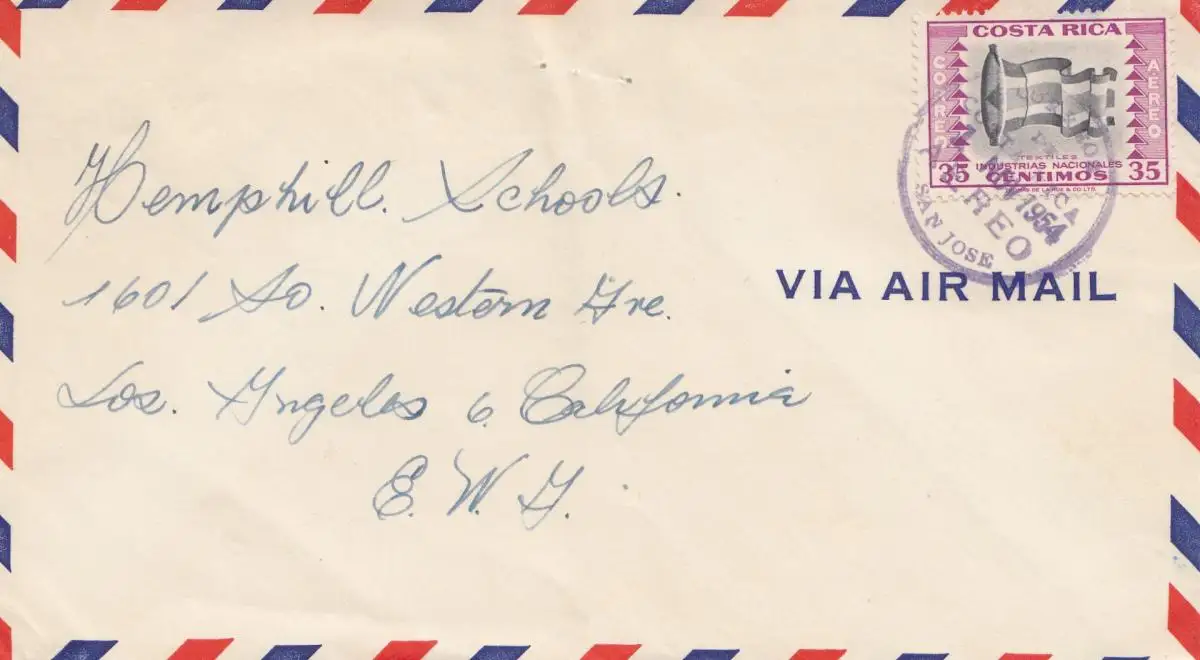 Hemphill. Schools.
1601 So. Western Ave.
Los. Angeles 6. California
E. W. A.
COSTA RICA
CORREO
AEREO
TEXTILES
INDUSTRIAS NACIONALES
35 CENTIMOS 35
THOMAS DE LA RUE & CO LTD.
1954
AEREO
SAN JOSE
VIA AIR MAIL